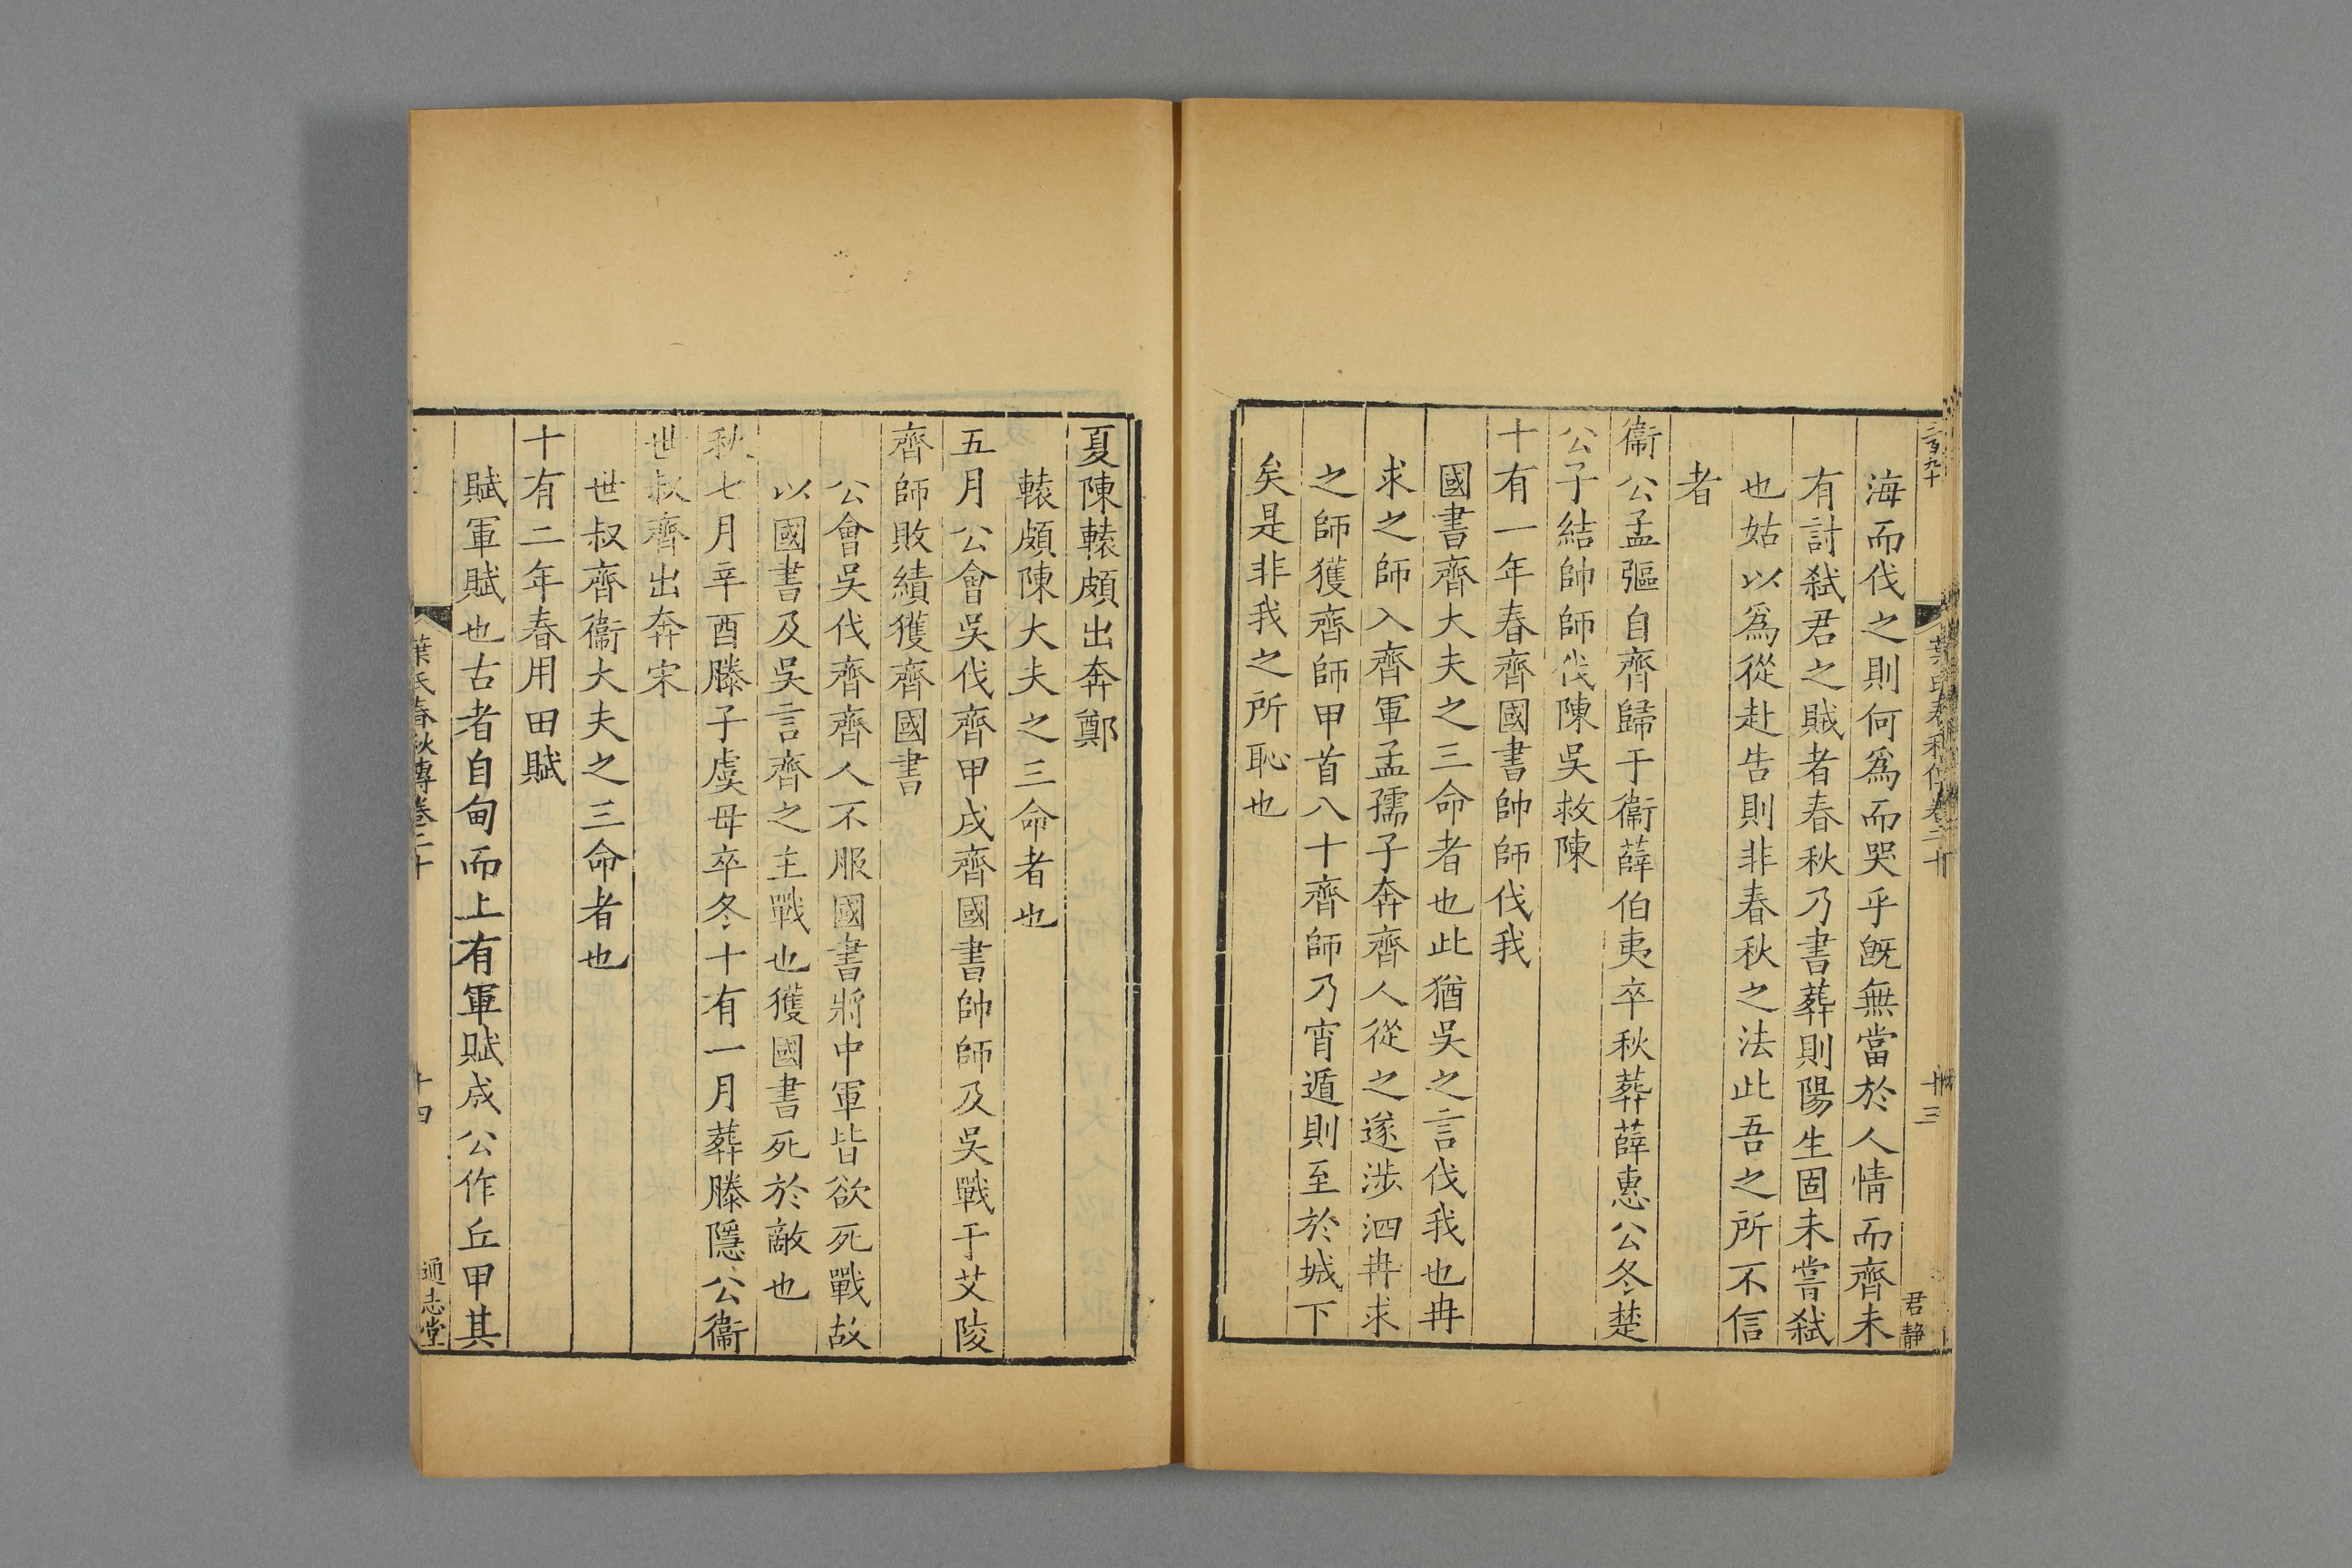 三百九十
葉氏春秋傳卷二十
十三
君靜
海而伐之則何爲而哭乎旣無當於人情而齊未
有討弑君之賊者春秋乃書葬則陽生固未嘗弑
也姑以爲從赴告則非春秋之法此吾之所不信
者
衞公孟彄自齊歸于衞薛伯夷卒秋葬薛惠公冬楚
公子結帥師伐陳吳救陳
十有一年春齊國書帥師伐我
國書齊大夫之三命者也此猶吳之言伐我也冉
求之師入齊軍孟孺子奔齊人從之遂涉泗冉求
之師獲齊師甲首八十齊師乃宵遁則至於城下
矣是非我之所恥也
夏陳轅頗出奔鄭
轅頗陳大夫之三命者也
五月公會吳伐齊甲戌齊國書帥師及吳戰于艾陵
齊師敗績獲齊國書
公會吳伐齊齊人不服國書將中軍皆欲死戰故
以國書及吳言齊之主戰也獲國書死於敵也
秋七月辛酉滕子虞母卒冬十有一月葬滕隱公衞
世叔齊出奔宋
世叔齊衞大夫之三命者也
十有二年春用田賦
賦軍賦也古者自甸而上有軍賦成公作丘甲其
葉氏春秋傳卷二十
十四
通志堂